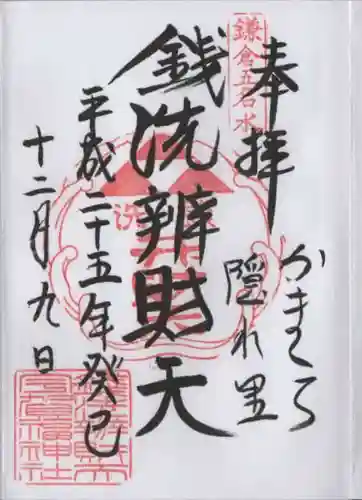 鎌倉五名水
奉拝
かまくら
隠れ里
銭洗辨財天
平成二十五年癸巳
十二月九日